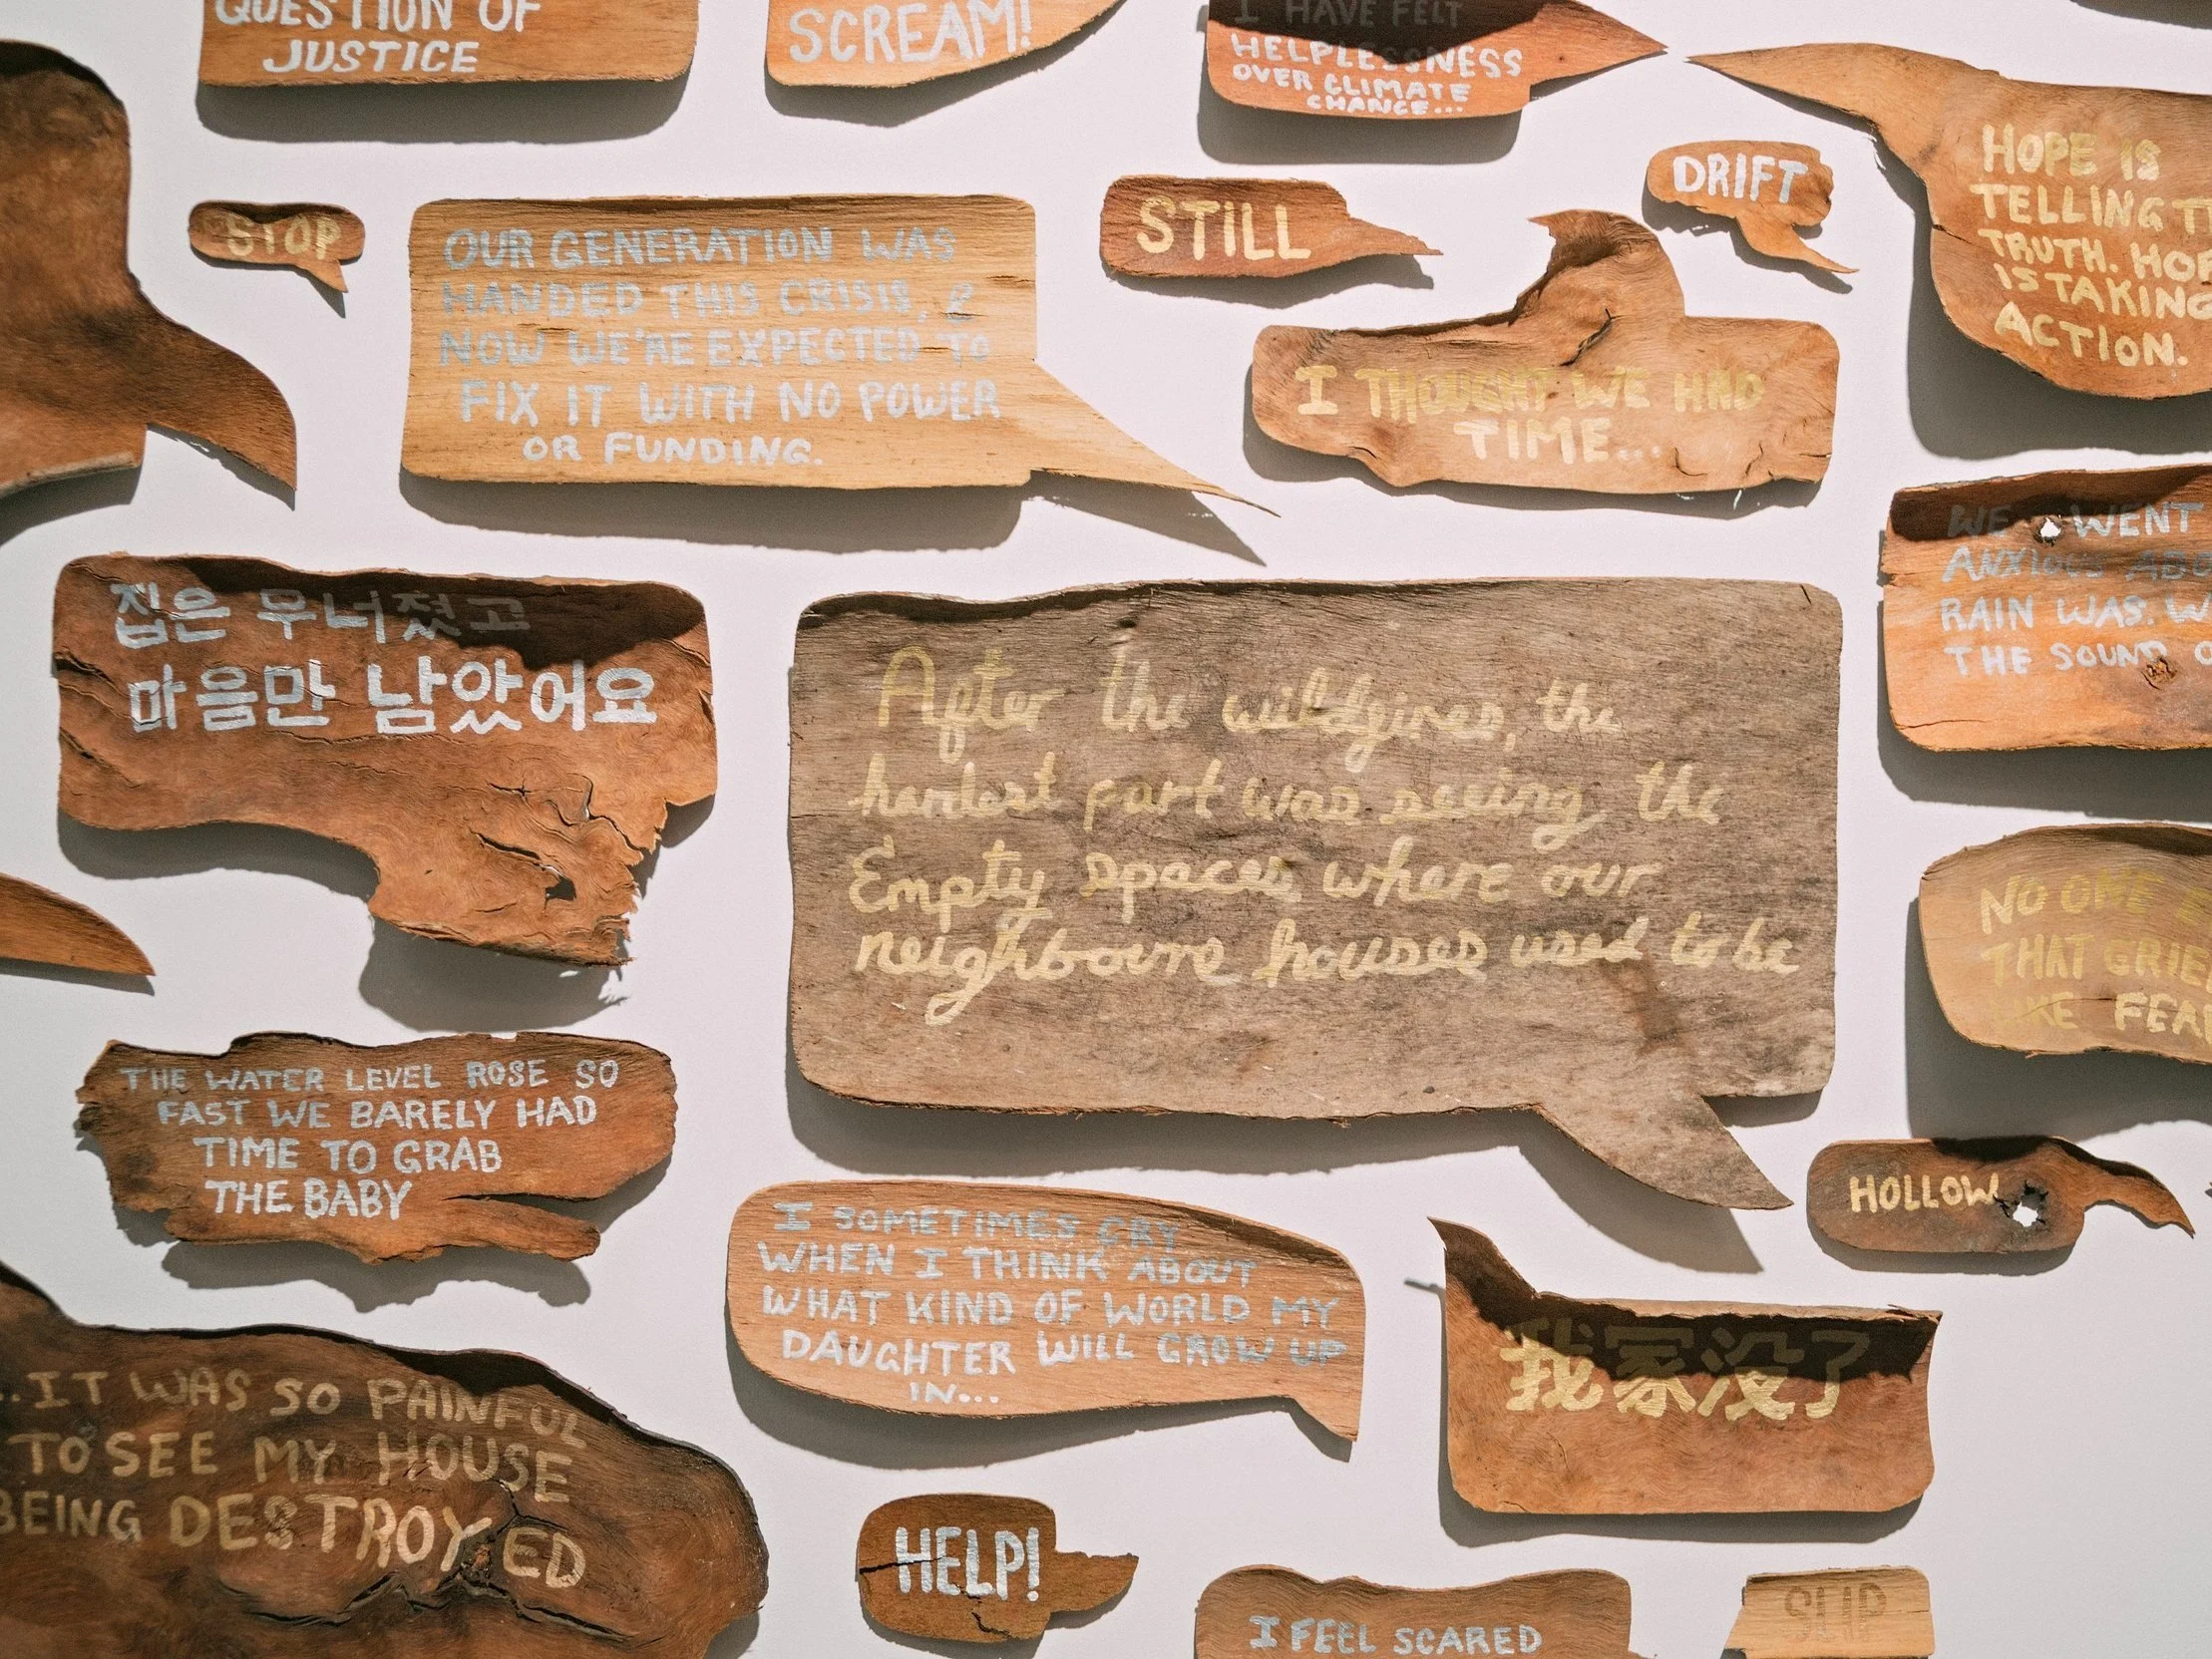 QUESTION OF
JUSTICE
SCREAM!
I HAVE FELT
HELPLESSNESS
OVER CLIMATE
CHANGE...
DRIFT
HOPE IS
TELLING
TRUTH.
IS TAKING
ACTION.
STOP
OUR GENERATION WAS
HANDED THIS CRISIS, &
NOW WE'RE EXPECTED TO
FIX IT WITH NO POWER
OR FUNDING.
STILL
I THOUGHT WE HAD
TIME...
WE WENT
ANXIOUS
RAIN WAS.
THE SOUND
집은 무너졌고
마음만 남았어요
After the wildfires, the
hardest part was seeing the
Empty spaces where our
neighbours houses used to be
NO ONE
THAT
THE WATER LEVEL ROSE SO
FAST WE BARELY HAD
TIME TO GRAB
THE BABY
HOLLOW
I SOMETIMES CRY
WHEN I THINK ABOUT
WHAT KIND OF WORLD MY
DAUGHTER WILL GROW UP
IN...
我家没了
...IT WAS SO PAINFUL
TO SEE MY HOUSE
BEING DESTROYED
HELP!
I FEEL SCARED
SLIP